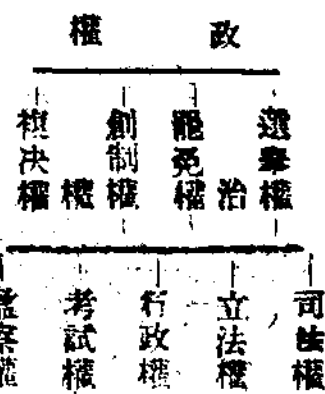 政權
選舉權
罷免權
創制權
複决權
治權
司法權
立法權
行政權
考試權
監察權